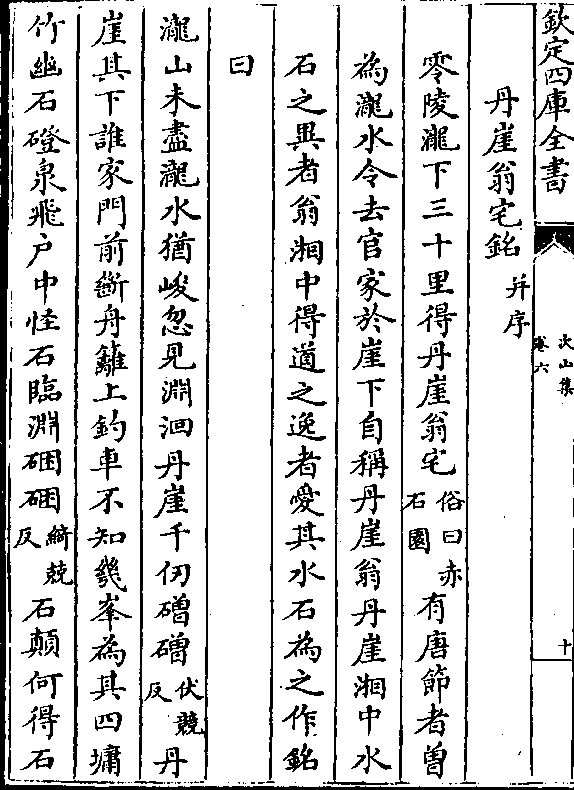 欽定四庫全書
次山集
卷六
十
丹崖翁宅銘 并序
零陵瀧下三十里得丹崖翁宅俗曰赤石園有唐節者曽
為瀧水令去官家於崖下自稱丹崖翁丹崖湘中水
石之異者翁湘中得道之逸者愛其水石為之作銘
曰
瀧山未盡瀧水猶峻忽見淵洄丹崖千仞磳磳伏兢反丹
崖其下誰家門前斷舟籬上釣車不知幾峯為其四墉
竹幽石磴泉飛户中怪石臨淵硱硱綺兢反石顛何得石